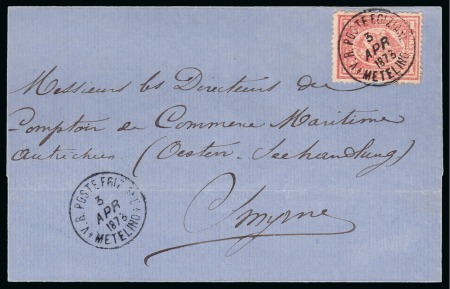 V.R. POSTE EGIZIANE
3
APR
1873
METELINO
Messieurs les Directeurs de
Comptoir de Commerce Maritime
Autrichien (Oesterr. Seehandlung)
Smyrne
V.R. POSTE EGIZIANE
3
APR
1873
METELINO